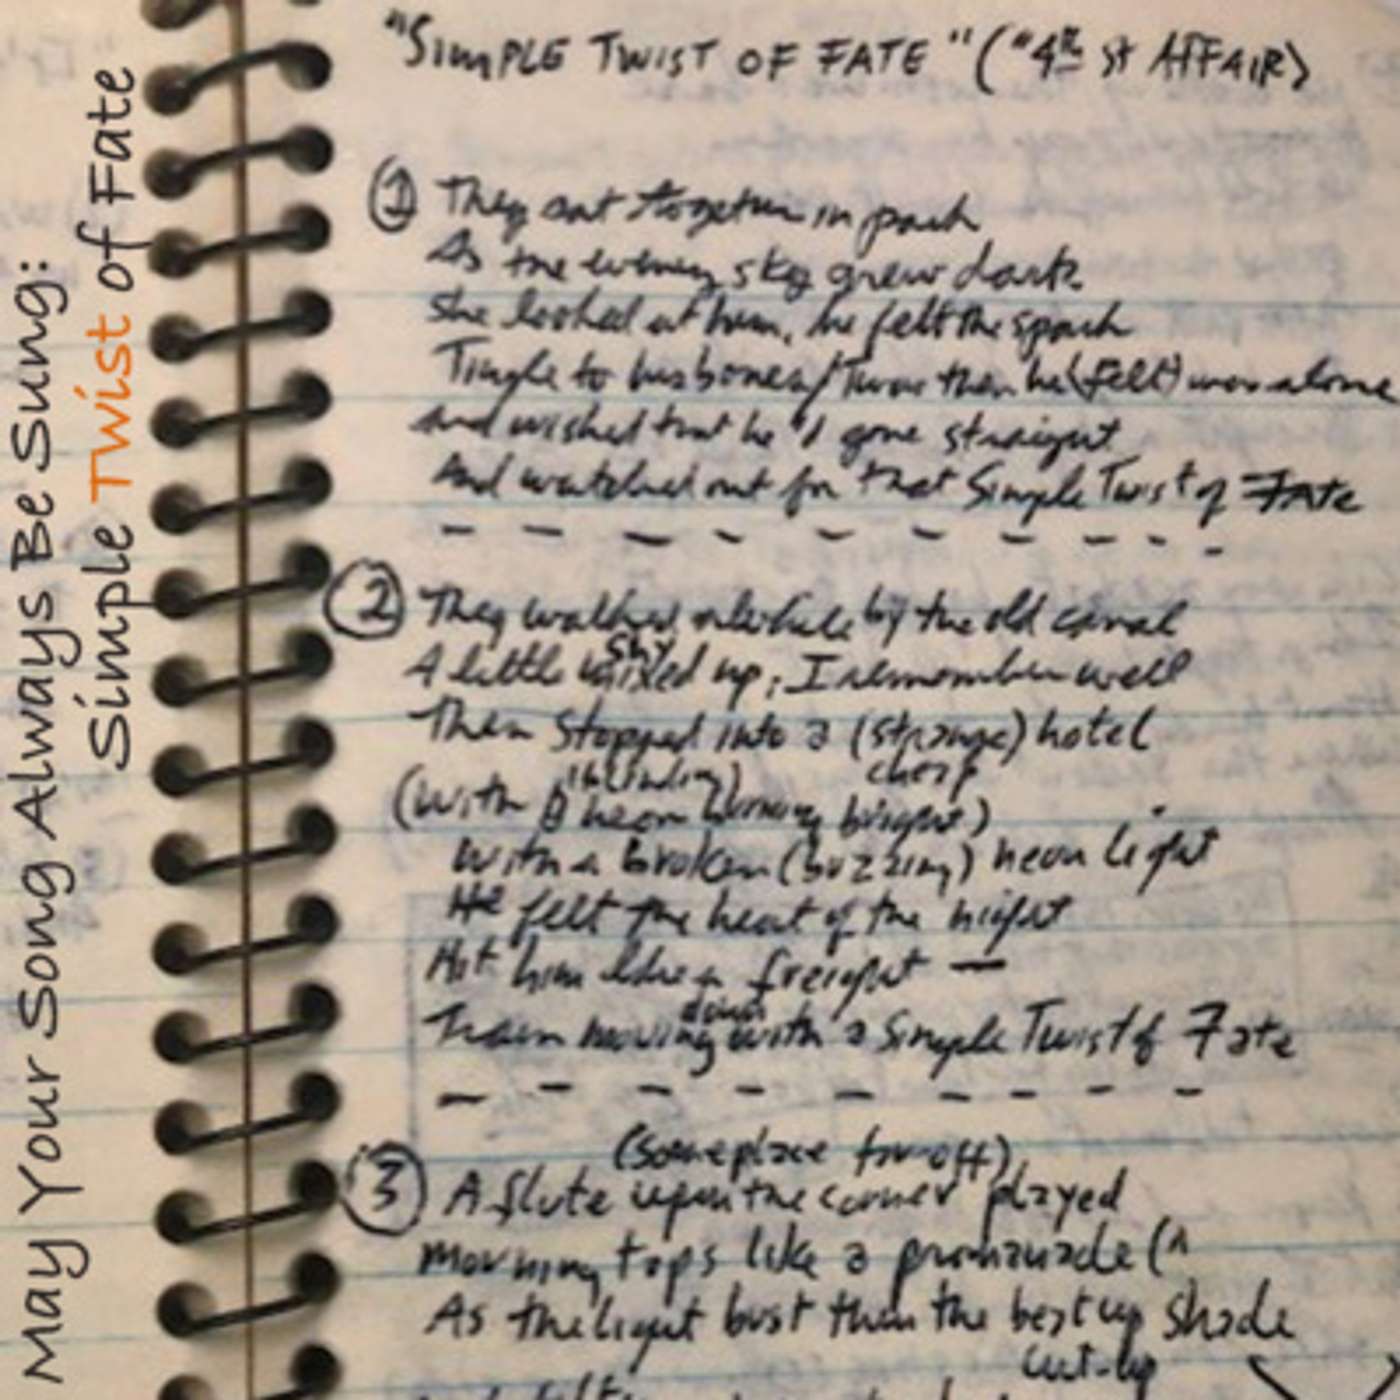 May Your Song Always Be Sung:
Simple Twist of Fate
"SIMPLE TWIST OF FATE" ("4th St AFFAIR)
① They sat together in park
As the evening sky grew dark
She looked at him, he felt the spark
Tingle to his bones / Twas then he (felt) was alone
And wished that he'd gone straight
And watched out for that Simple Twist of Fate
② They walked by the old canal
shy
A little mixed up, I remember well
Then stopped into a (strange) hotel
cheap
(With neon burning bright)
With a broken (buzzing) neon light
He felt the heat of the night
Hit him like a freight —
down
Train moving with a Simple Twist of Fate
(Someplace far-off)
③ A flute upon the corner played
Morning taps like a (
As the light bust thru the beat up shade
cut-up